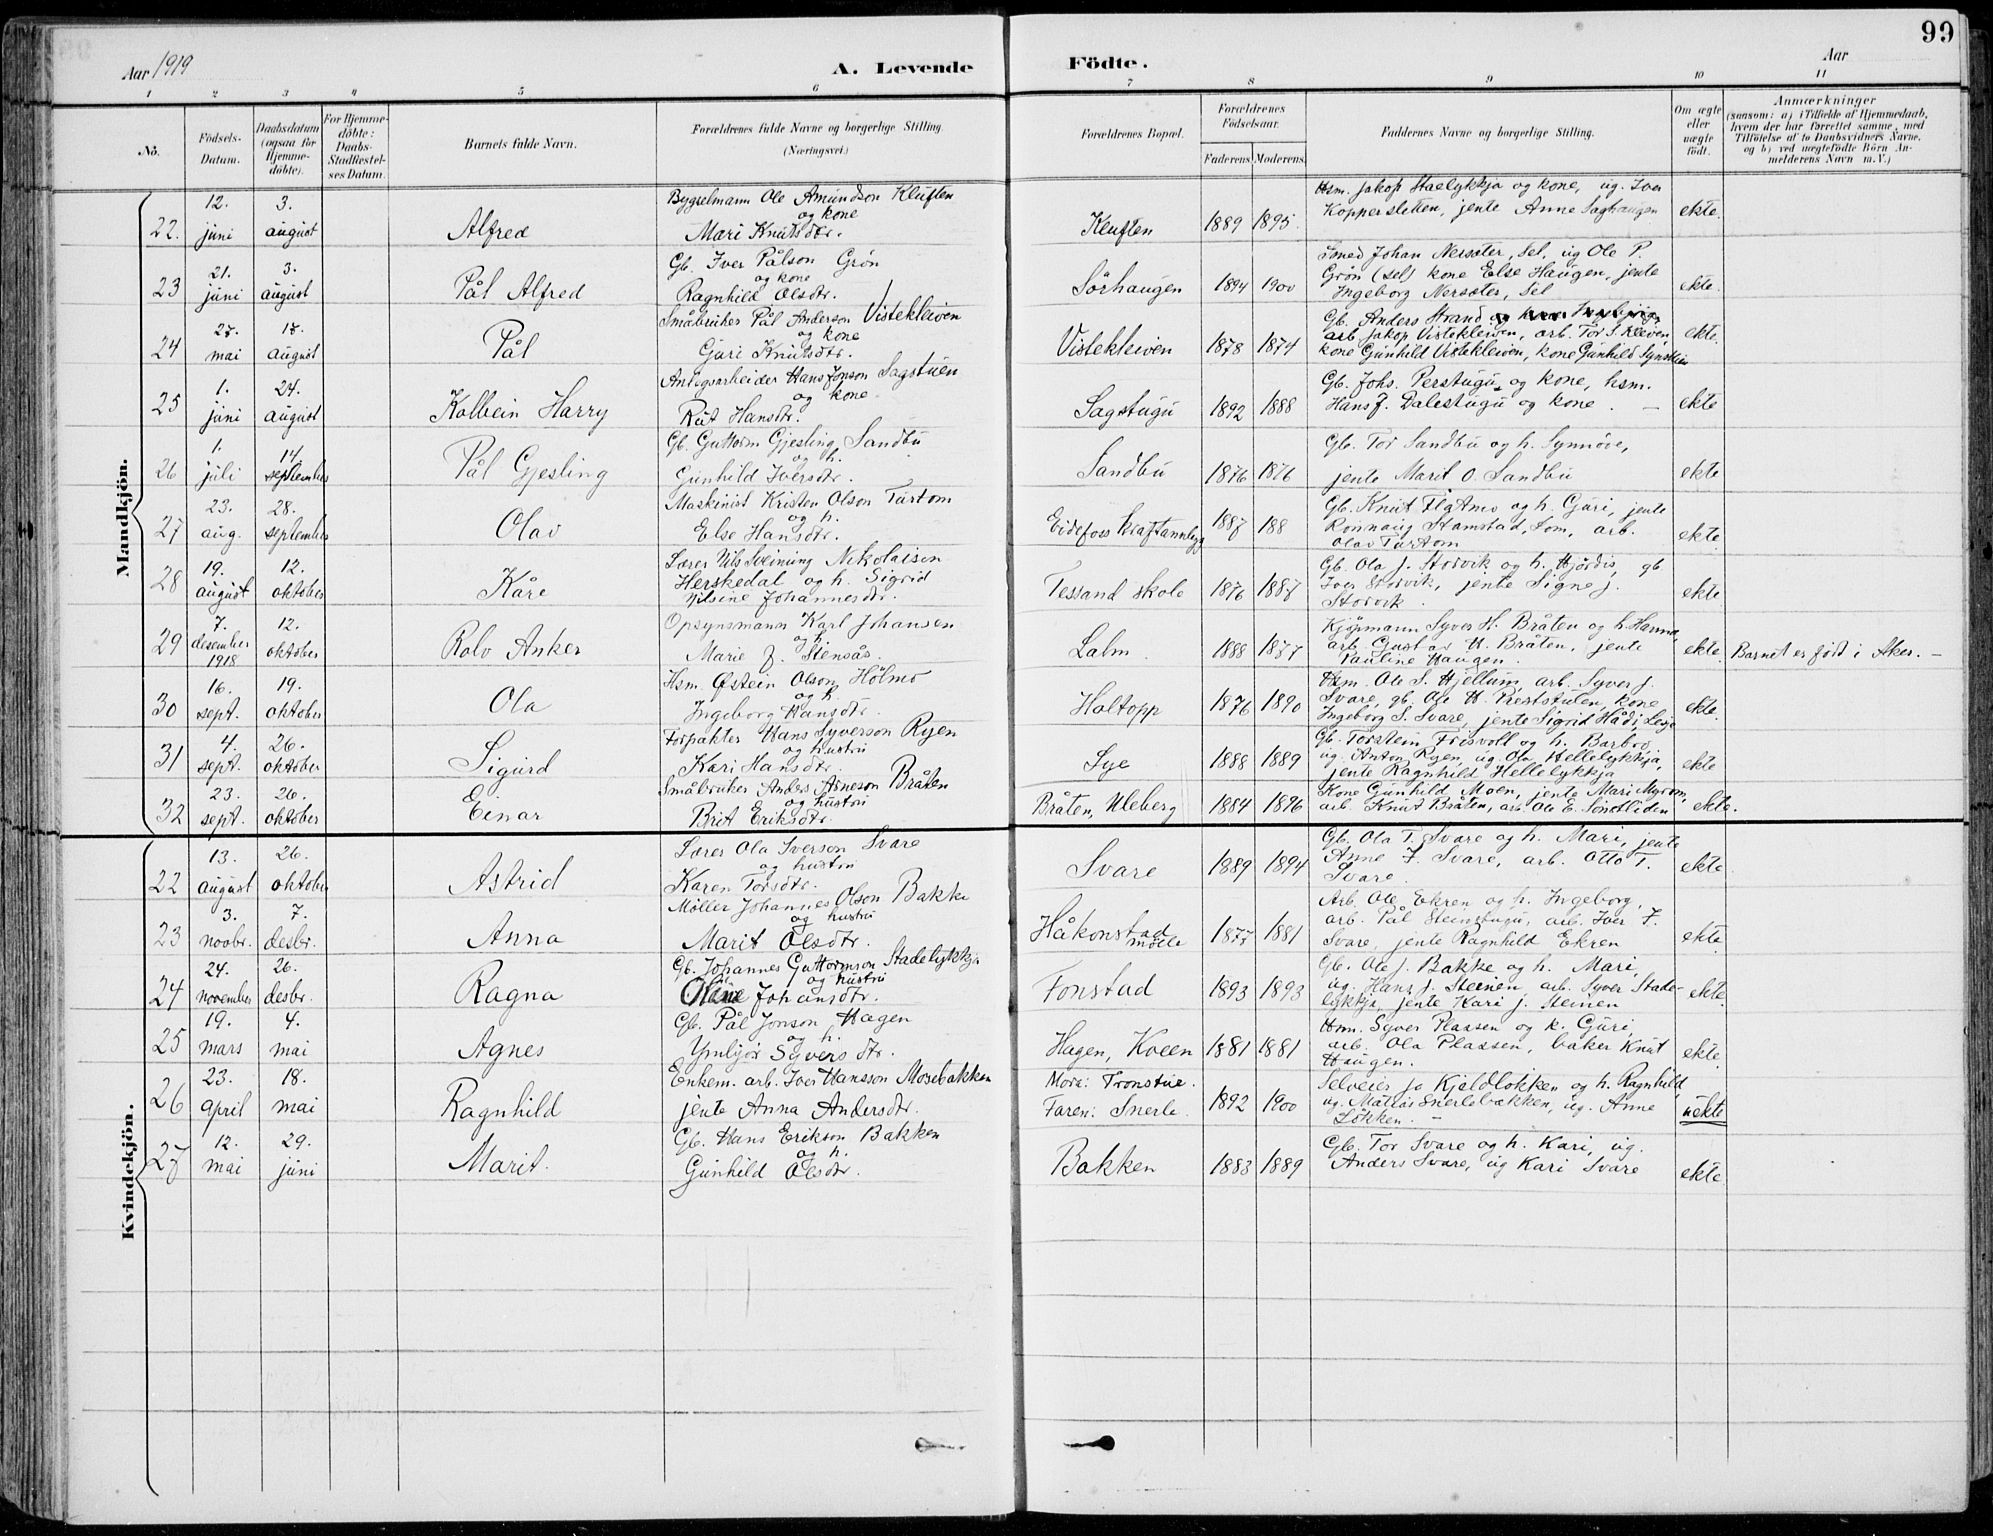 99
Aar 1919
A. Levende Födte.
Aar
1 2 3 4 5 6 7 8 9 10 11
No.
Födsels-Datum.
Daabsdatum (ogsaa for Hjemme-döbte).
For Hjemme-döbte: Daabs-Stadfæstel-ses Datum.
Barnets fulde Navn.
Forældrenes fulde Navne og borgerlige Stilling. (Næringsvei.)
Forældrenes Bopæl.
Forældrenes Födselsaar.
Faderens. Moderens.
Faddernes Navne og borgerlige Stilling.
Om ægte eller uægte födt.
Anmærkninger (saasom: a) i Tilfælde af Hjemmedaab, hvem der har forrettet samme, med Tilföielse af to Daabsvidners Navne, og b) ved uægtefödte Börn An-melderens Navn m. V.)
Mandkjön.
22. 12. juni 3. august Alfred
Bygselmann Ole Amundson Kluften
og kone
Mari Knutsdtr.
Kluften 1889 1895.
Hsm. Jakop Staelykkja og kone, ug. Iver
Koppersletten, jente Anne Saghaugen
ekte.
23 21. juni 3. august Pål Alfred
Gb. Iver Pålson Grøn
og kone
Ragnhild Olsdtr.
Sörhaugen 1894 1900
Smed Johan Nersæter, Sel, ug Ole P.
Grøn (Sel) kone Else Haugen, jente
Ingeborg Nersæter, Sel
ekte.
24 27. mai 17. august Pål
Småbruker Pål Anderson Vistekleiven
og kone
Guri Knutsdtr.
Vistekleiven 1878 1874
Gb. Anders Strand
arb Jakop Vistekleiven, arb. Tor S. Kleiven,
kone Gunhild Vistekleiven, kone Gunhild
ekte.
25 1. juni 24. august Kolbein Harry
Anlegsarbeider Hans Jonson Sagstuen
og kone
Rut Hansdtr.
Sagstugu 1892 1888
Gb. Johs. Perstugu og kone, hsm.
Hans J. Dalestugu og kone. —
ekte
26 1. juli 14. september Pål Gjesling
Gb. Guttorm Gjesling Sandbu
og h.
Gunhild Iversdtr.
Sandbu 1876 1876
Gb. Tor Sandbu og h. Synnöve,
jente Marit O. Sandbu
ekte
27 23. aug. 28. september Olav
Maskinist Kristen Olson Turtom
og h.
Else Hansdtr.
Eidefoss Kraftannlegg 1887 188
Gb. Knut Flatmo og h. Guri, jente
Rönnaug Stamstad, Lom, arb.
Olav Turtom
ekte
28 19. august 12. oktober Kåre
Lærer Nils Sveinung Nikolaisen
Herskedal og h. Sigrid
Nilsine Johannesdtr.
Tessand skole 1876 1887
Gb. Ola J. Storvik og h. Hjördis, gb
Iver Storvik, jente Signe J.
Storvik.
ekte
29 7. desember 1918 12. oktober Rolv Anker
Opsynsmann Karl Johansen
og h.
Marie J. Stensås.
Lalm 1888 1877
Kjöpmann Syver H. Bråten og h. Hanna,
arb. Gustav H. Bråten, jente
Pauline Haugen.
ekte. Barnet er född i Aker. —
30 16. sept. 19. oktober Ola
Hsm. Østein Olson Holmo
og h.
Ingeborg Hansdtr.
Holtopp 1876 1890
Hsm. Ole S. Hjellum, arb. Syver J.
Svare, gb. Ole H. Prestst​ulen, kone
Ingeborg S. Svare, jente Sigrid Hådi, Lesja
ekte.
31 4. sept. 26. oktober Sigurd
Forpakter Hans Syverson Ryen
og hustru
Kari Hansdtr.
Lye 1888 1889
Gb. Torstein Frisvoll og h. Barbro,
ug. Anton Ryen, ug. Ola Hellelykkja,
jente Ragnhild Hellelykkja
ekte
32 23. sept. 26. oktober Einar
Småbruker Anders Arneson Bråten
og hustru
Brit Eriksdtr.
Bråten, Uleberg 1884 1896
Kone Gunhild Moen, jente Mari Myrom,
arb. Knut Bråten, arb. Ole E.
ekte.
Kvindekjön.
22 13. august 26. oktober Astrid
Lærer Ola Iverson Svare
og hustru
Karen Torsdtr.
Svare 1889 1894
Gb. Ola T. Svare og h. Mari, jente
Anne I. Svare, arb. Otto T.
Svare.
ekte.
23 3. novbr. 7. desbr. Anna
Möller Johannes Olson Bakke
og hustru
Marit Olsdtr.
Håkonstad mölle 1877 1881
Arb. Ole Ekren og h. Ingeborg,
arb. Pål Steinstugu, arb. Iver I.
Svare, jente Ragnhild Ekren
ekte.
24 24. november 26. desbr. Ragna
Gb. Johannes Guttormson Stadelykkja
og hustru
Oline Johansdtr.
Fonstad 1893 1893
Gb. Ole J. Bakke og h. Mari,
ug. Hans J. Steinen, arb. Syver Stade-
lykkja, jente Kari J. Steinen
ekte.
25 19. mars 4. mai Agnes
Gb. Pål Jonson Hagen
og h.
Ymbjör Syversdtr.
Hagen, Kolen 1881 1881
Hsm. Syver Plassen og k. Guri,
arb. Ola Plassen, baker Knut
Haugen.
ekte.
26 23. april 18. mai Ragnhild
Enkem. arb. Iver Hansson Mosebakken
jente Anna Andersdtr.
Mora: Tronstue.
Faren: Snerle. 1892 1900
Selveier Jo Kjeldlökken og h. Ragnhild,
ug. Matias Snerlebækken, ug. Anne
Lökken. —
uekte
27 12. mai 29. juni Marit.
Gb. Hans Erikson Bakken
og h.
Gunhild Olsdtr.
Bakken 1883 1889
Gb. Tor Svare og h. Kari, ug.
Anders Svare, ug Kari Svare
ekte.